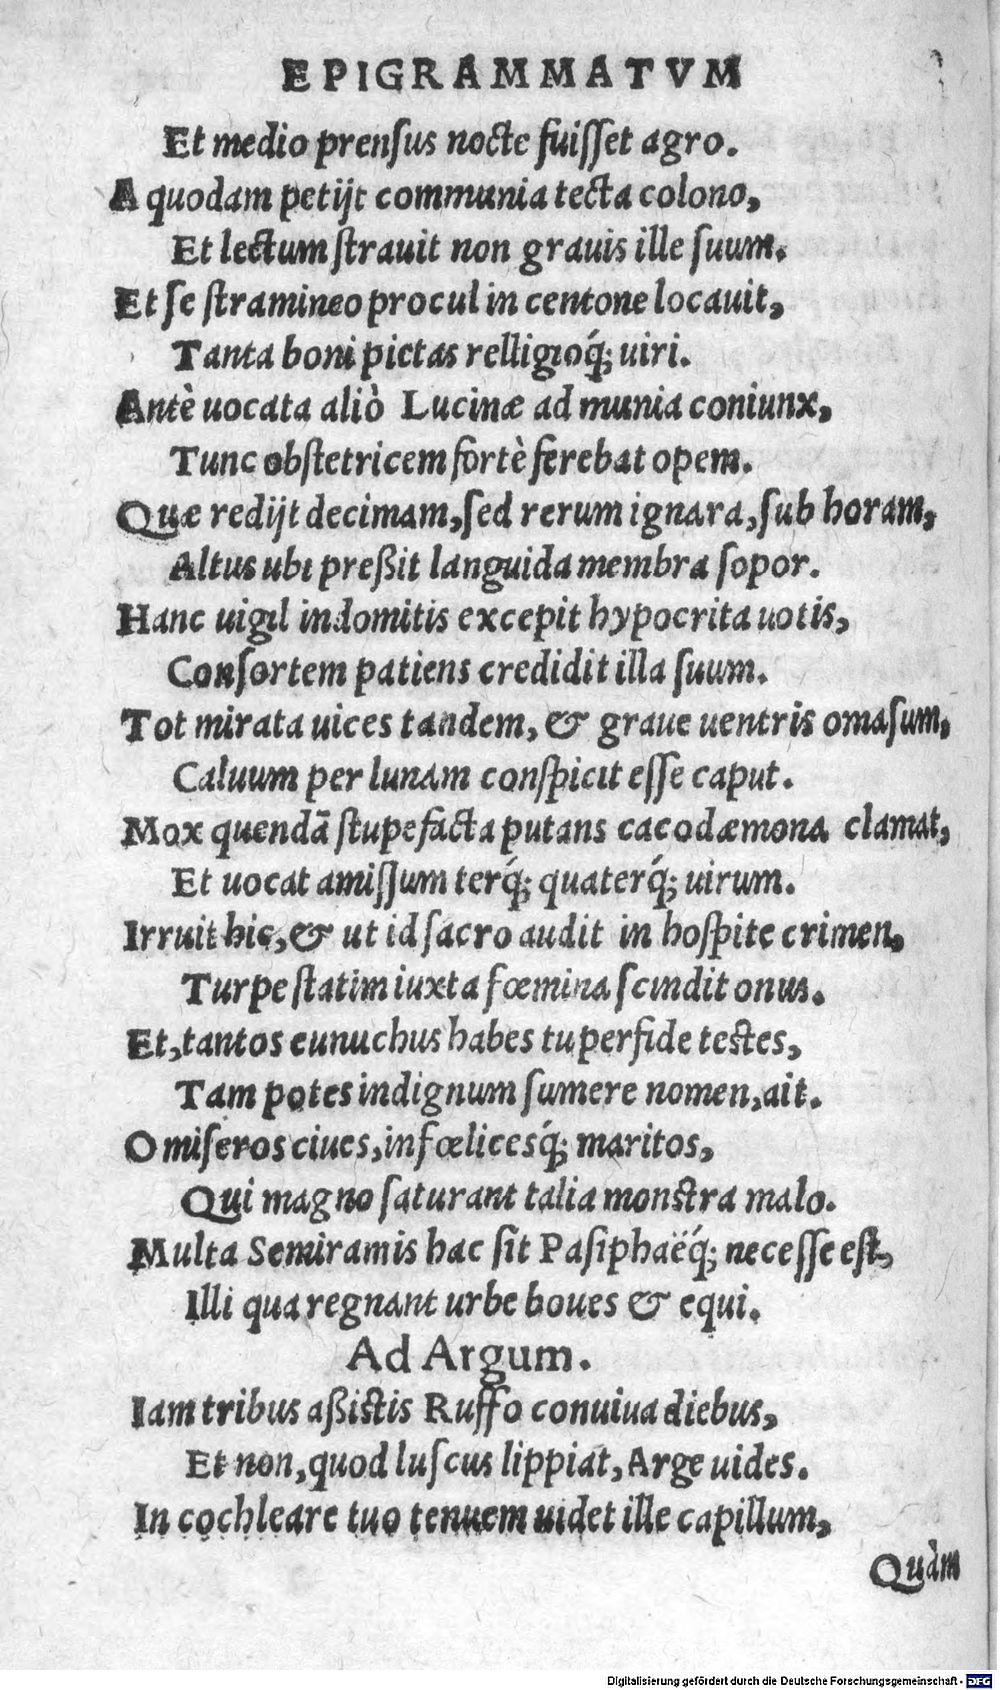 EPIGRAMMATVM
Et medio prenſus nocte fuiſſet agro.
A quodam petijt communia tecta colono,
Et lectum ſtrauit non grauis ille ſuum.
Et ſe ſtramineo procul in centone locauit,
Tanta boni pietas relligioq́; uiri.
Antè uocata aliò Lucinæ ad munia coniunx,
Tunc obſtetricem fortè ferebat opem.
Quæ redijt decimam, ſed rerum ignara, ſub horam,
Altus ubi preßit languida membra ſopor.
Hanc uigil indomitis excepit hypocrita uotis,
Conſortem patiens credidit illa ſuum.
Tot mirata uices tandem, & graue uentris omaſum,
Caluum per lunam conſpicit eſſe caput.
Mox quendā ſtupefacta putans cacodæmona clamat,
Et uocat amiſſum terq́; quaterq́; uirum.
Irruit hic, & ut id ſacro audit in hoſpite crimen,
Turpe ſtatim iuxta fœmina ſcindit onus.
Et, tantos eunuchus habes tu perfide teſtes,
Tam potes indignum ſumere nomen, ait.
O miſeros ciues, infœlicesq́; maritos,
Qui magno ſaturant talia monſtra malo.
Multa Semiramis hac ſit Paſiphaëq́; neceſſe eſt,
Illi qua regnant urbe boues & equi.
Ad Argum.
Iam tribus aßiſtis Ruffo conuiua diebus,
Et non, quod luſcus lippiat, Arge uides.
In cochleare tuo tenuem uidet ille capillum,
Quàm
Digitalisierung gefördert durch die Deutsche Forschungsgemeinschaft - DFG